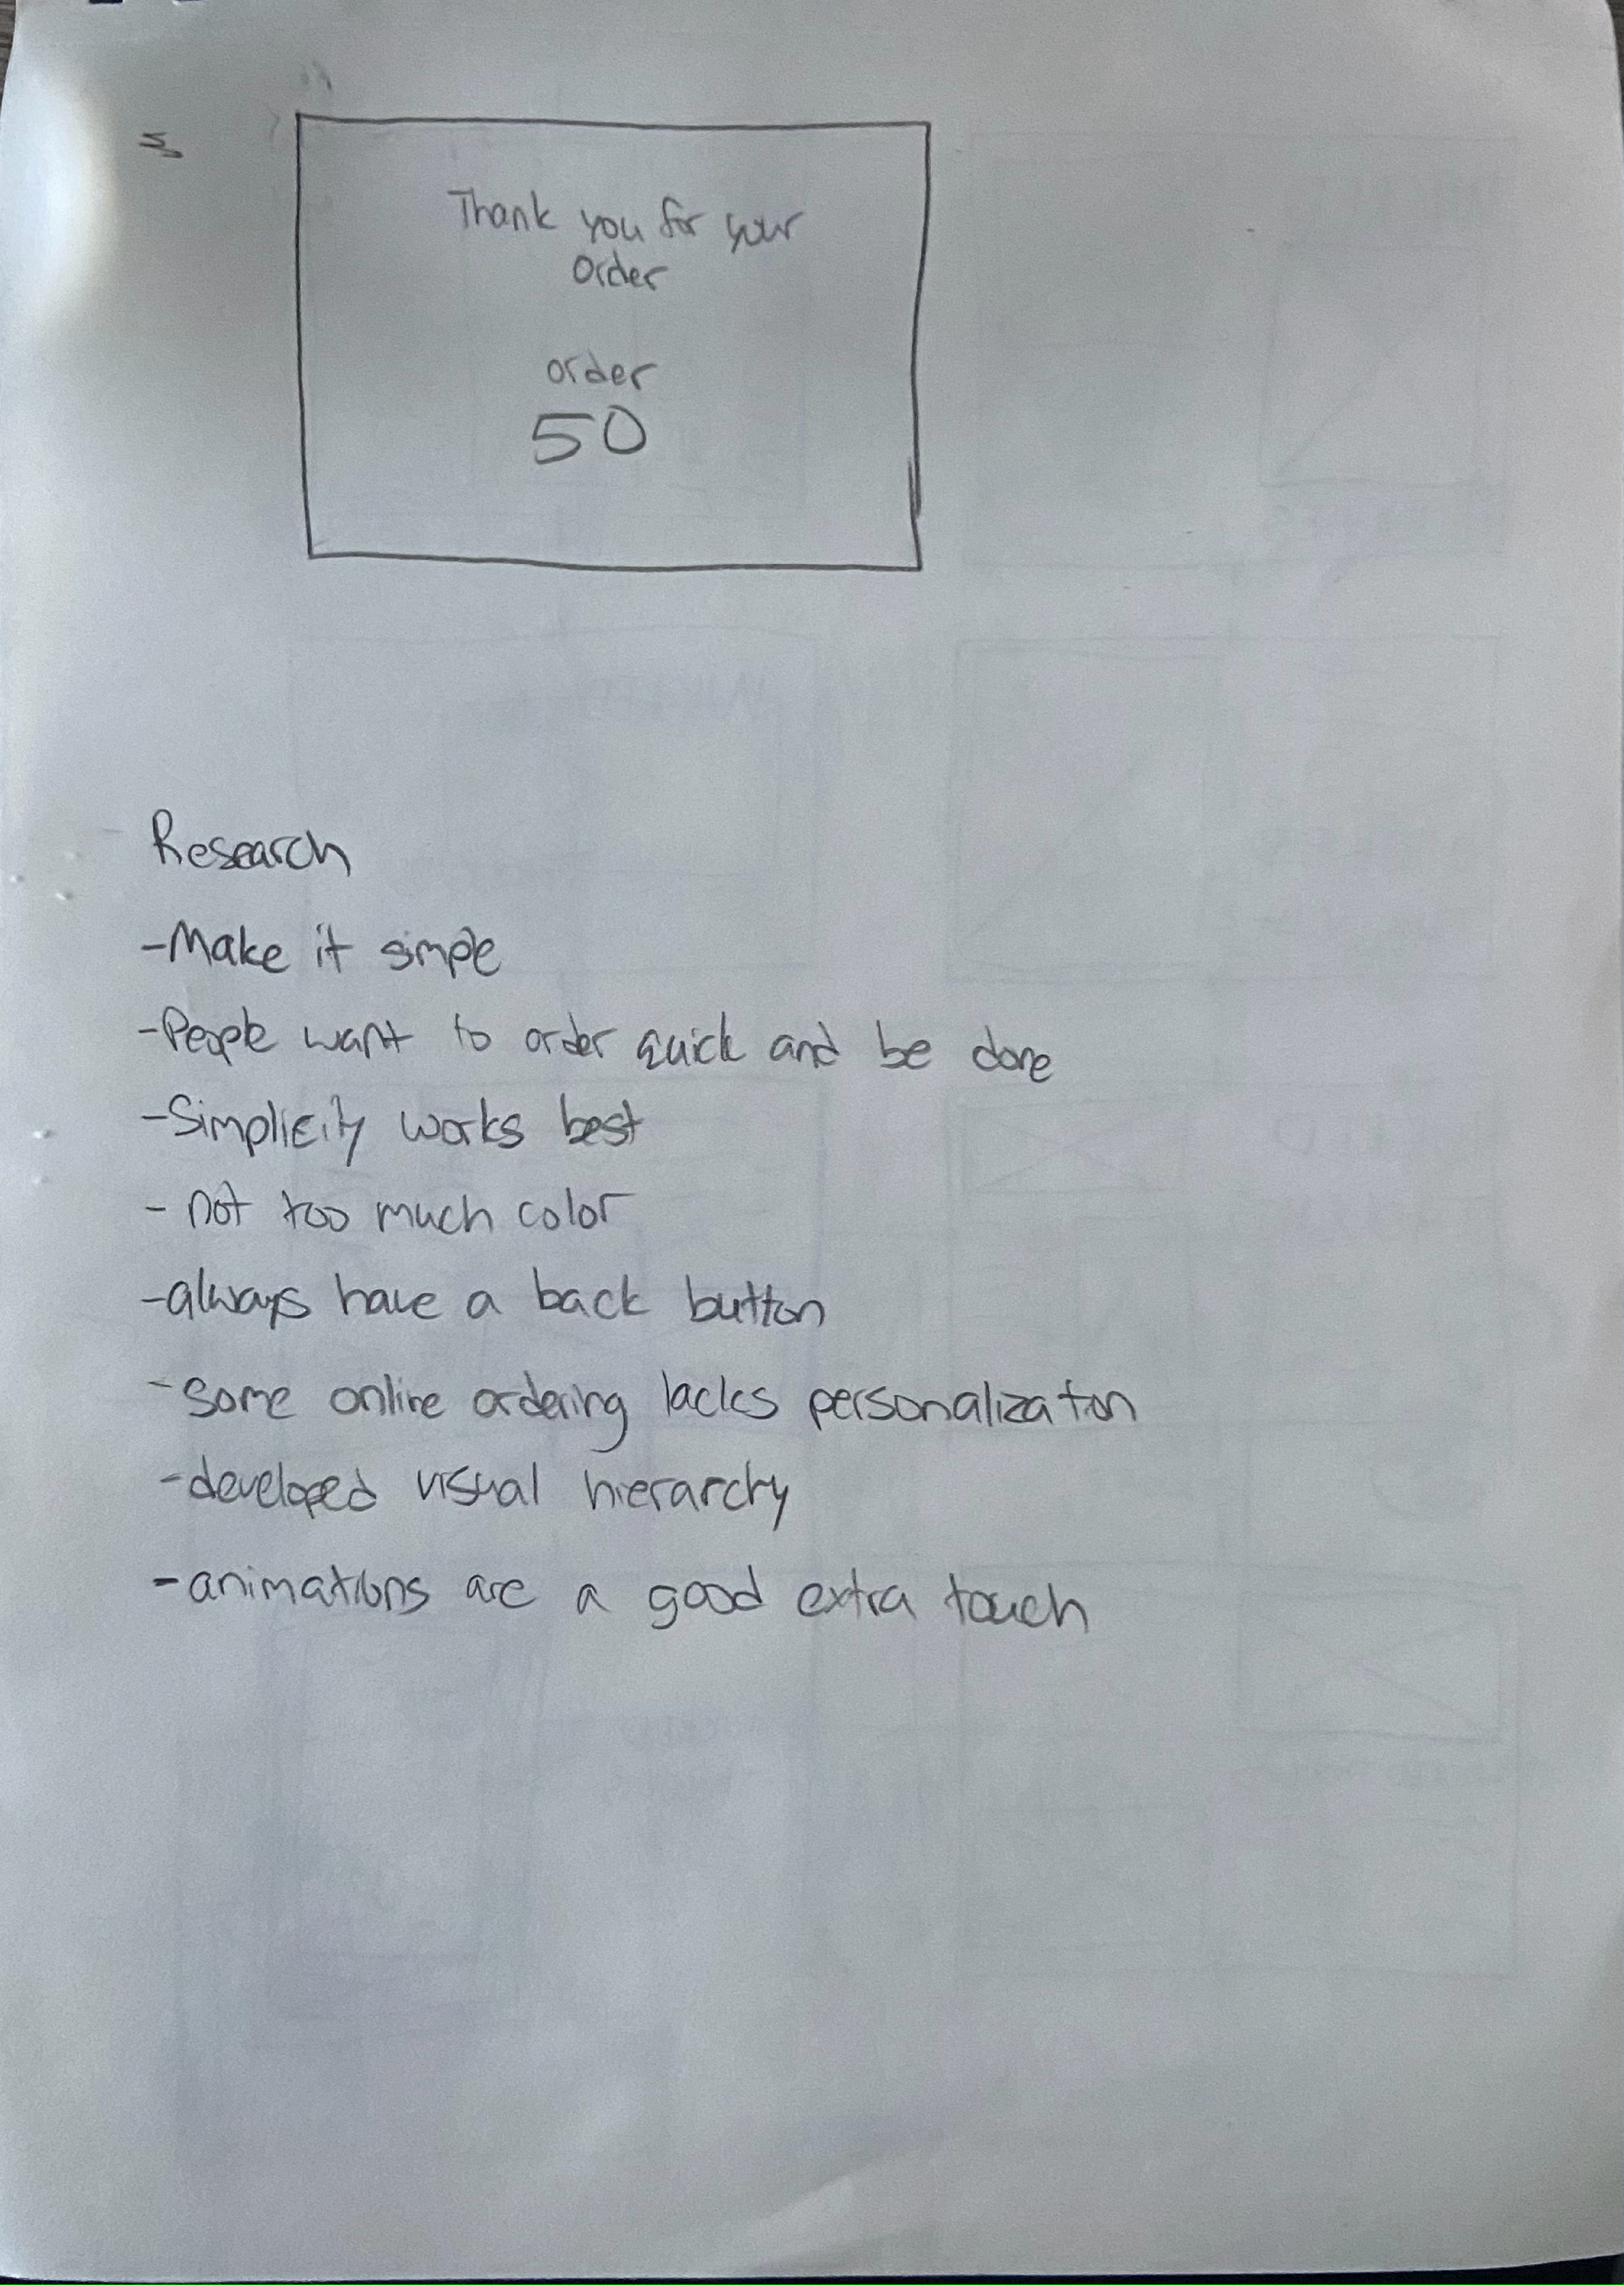 Thank you for your
Order
order
50
Research
-Make it simple
-People want to order quick and be done
-Simplicity works best
- not too much color
-always have a back button
-some online ordering lacks personalizaton
-developed visual hierarchy
-animations are a good extra touch